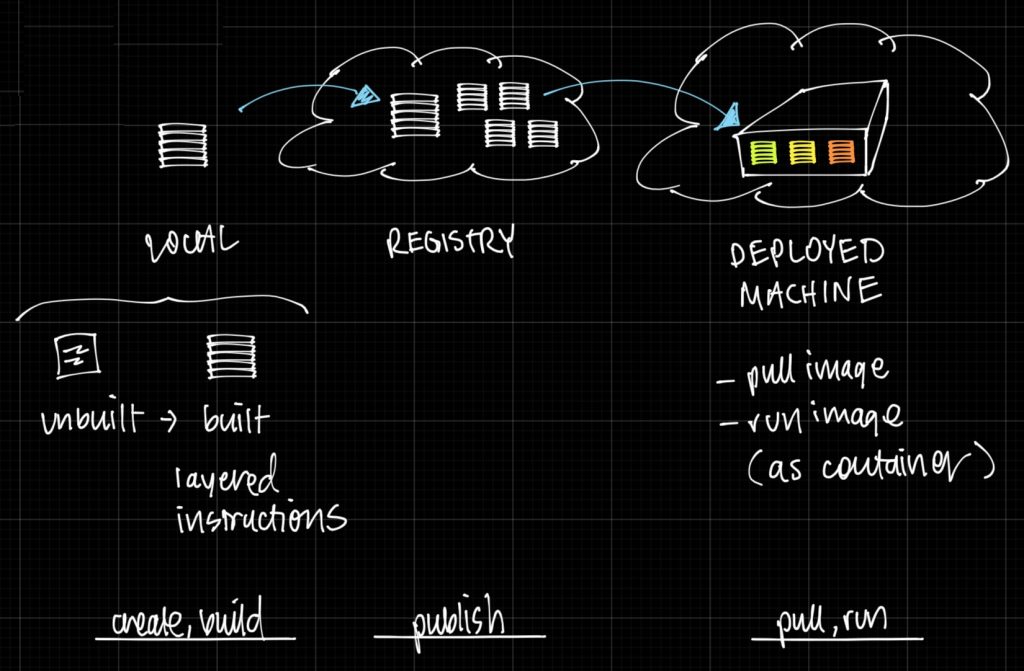 LOCAL
REGISTRY
DEPLOYED
MACHINE
unbuilt → built
layered
instructions
- pull image
- run image
(as container)
create, build
publish
pull, run